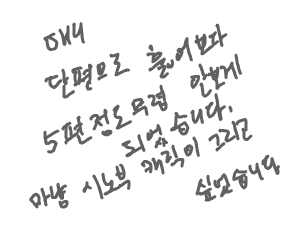 애니
단편으로 훑어보다
5편정도무렵 안보게
되었습니다.
마냥 시노부 캐릭이 그리고
싶었습니다